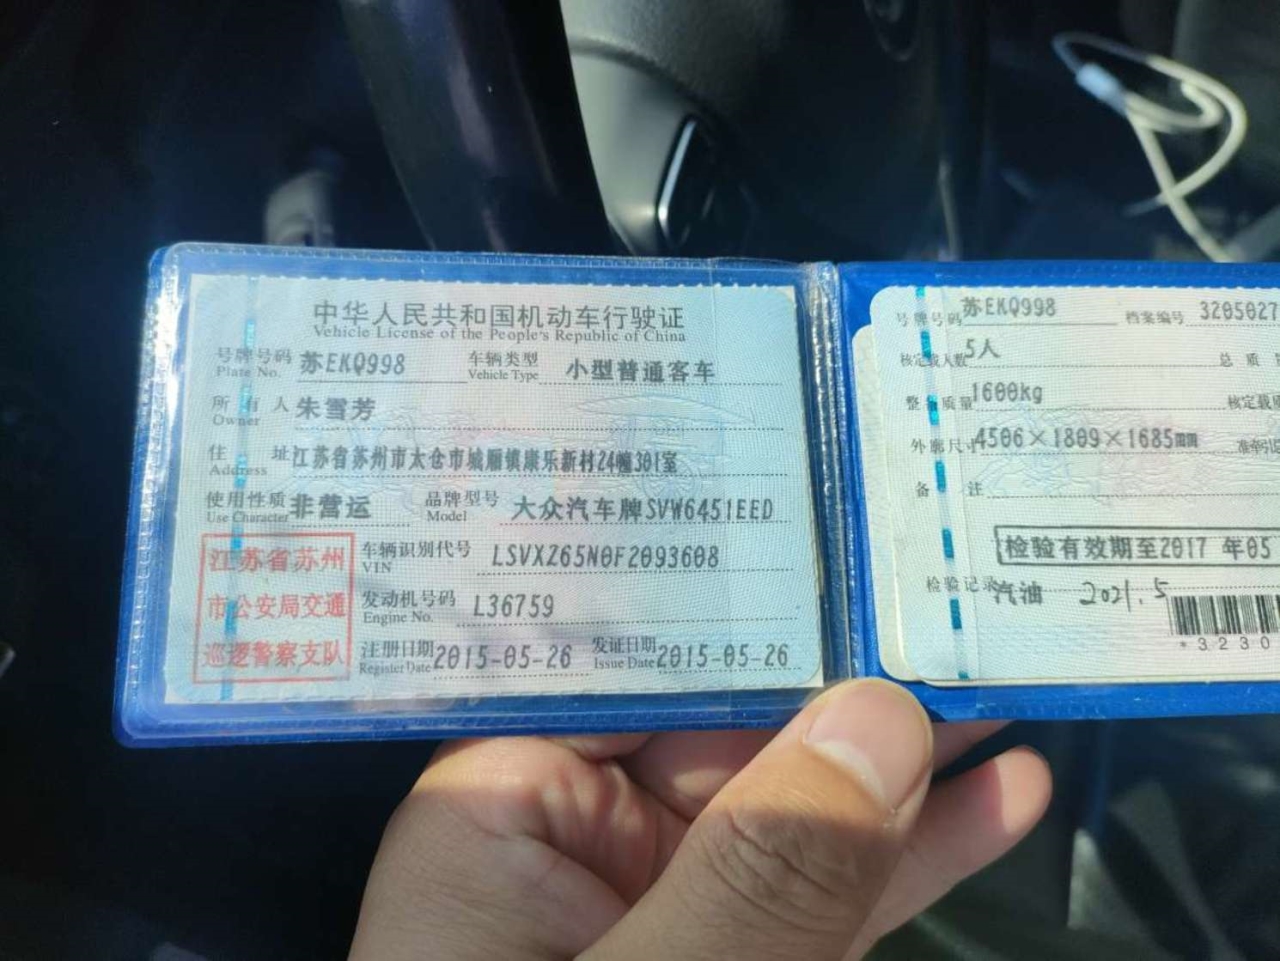 中华人民共和国机动车行驶证
Vehicle License of the People's Republic of China
号牌号码 苏EKQ998 车辆类型 小型普通客车
Plate No. Vehicle Type
所有人 朱雪芳
Owner
住址 江苏省苏州市太仓市城厢镇康乐新村24幢301室
Address
使用性质 非营运 品牌型号 大众汽车牌SVW6451EED
Use Character Model
江苏省苏州
市公安局交通
巡逻警察支队
车辆识别代号 LSVXZ65N0F2093608
VIN
发动机号码 L36759
Engine No.
注册日期 2015-05-26 发证日期 2015-05-26
Register Date Issue Date
号牌号码 苏EKQ998 档案编号 3205027
核定载人数 5人 总质
整备质量 1600kg 核定载质
外廓尺寸 4506×1809×1685mm 准牵引
备注
检验有效期至2017 年05
检验记录 汽油 2021.5
*3230